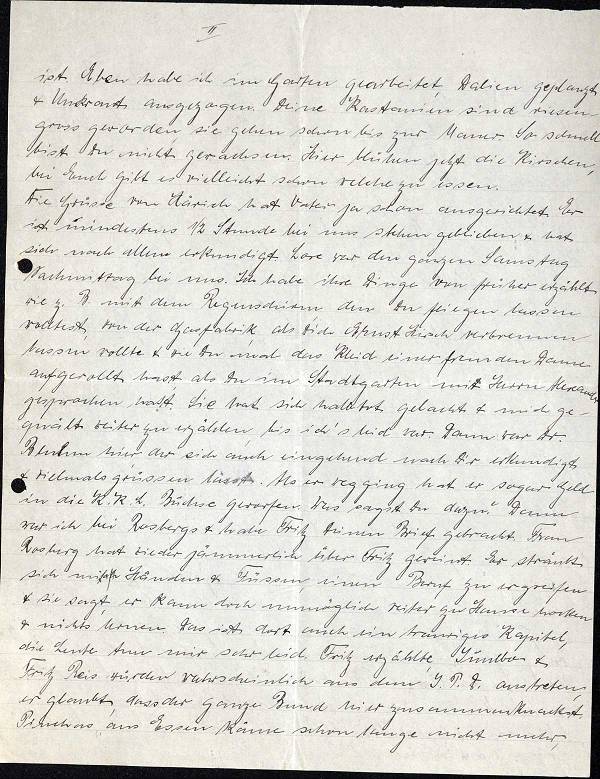 II
ist. Eben habe ich im Garten gearbeitet, Dalien geplanzt
& Unkraut ausgezogen. Deine Kastanien sind riesen-
gross geworden sie gehen schon bis zur Mauer. So schnell
bist Du nicht gewachsen. Hier blühen jetzt die Kirschen,
bei Euch gibt es vielleicht schon welche zu essen.
Die Grüsse von Zürich hat Vater ja schon ausgerichtet. Er
ist mindestens 1/2 Stunde bei uns stehen geblieben & hat
sich nach allem erkundigt. Lore war den ganzen Samstag
Nachmittag bei uns. Ich habe ihr Dinge von früher erzählt
wie z. B. mit dem Regenschirm den Du fliegen lassen
wolltest, von der Gasfabrik als Dich Ernst Hirsch verbrennen
lassen wollte & wie Du mal das Kleid einer fremden Dame
aufgerollt hast als Du im Stadtgarten mit Herrn Alexander
gesprochen hast. Sie hat sich halbtot gelacht & mich ge-
quält weiter zu erzählen bis ich's leid war. Dann war Dr.
hier der sich auch eingehend nach Dir erkundigt
& vielmals grüssen lässt. Als er wegging hat er sogar Geld
in die K.K.L. Büchse geworfen. Was sagst Du dazu? Dann
war ich bei Rosbergs & habe Fritz Deinen Brief gebracht. Frau
Rosberg hat wieder jämmerlich über Fritz geweint. Er sträubt
sich mit Händen & Füssen, einen Beruf zu ergreifen
& sie sagt, er kann doch unmöglich weiter zu Hause hocken
& nichts lernen. Das ist dort auch ein trauriges Kapitel,
die Leute tun mir sehr leid. Fritz erzählte, &
Fritz Reis würden wahrscheinlich aus dem J.P.D. austreten,
er glaubt, dass der ganze Bund hier zusammenkracht.
Pinchas aus Essen käme schon lange nicht mehr,